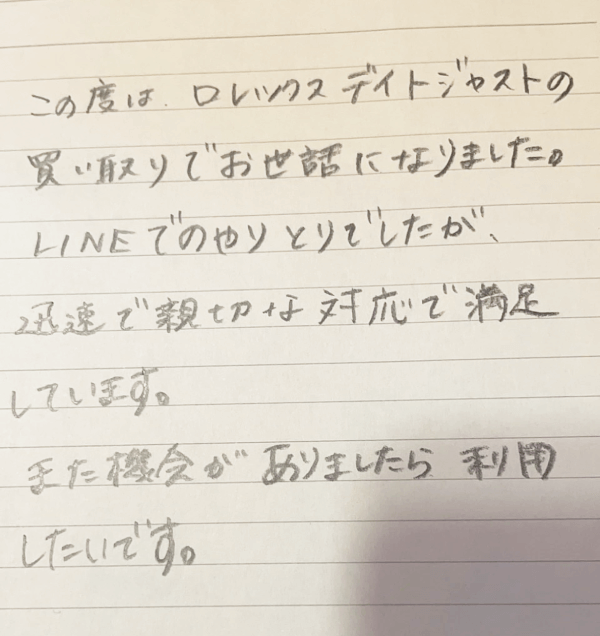 この度は、ロレックスデイトジャストの
買い取りでお世話になりました。
LINEでのやりとりでしたが、
迅速で親切な対応で満足
しています。
また機会がありましたら利用
したいです。